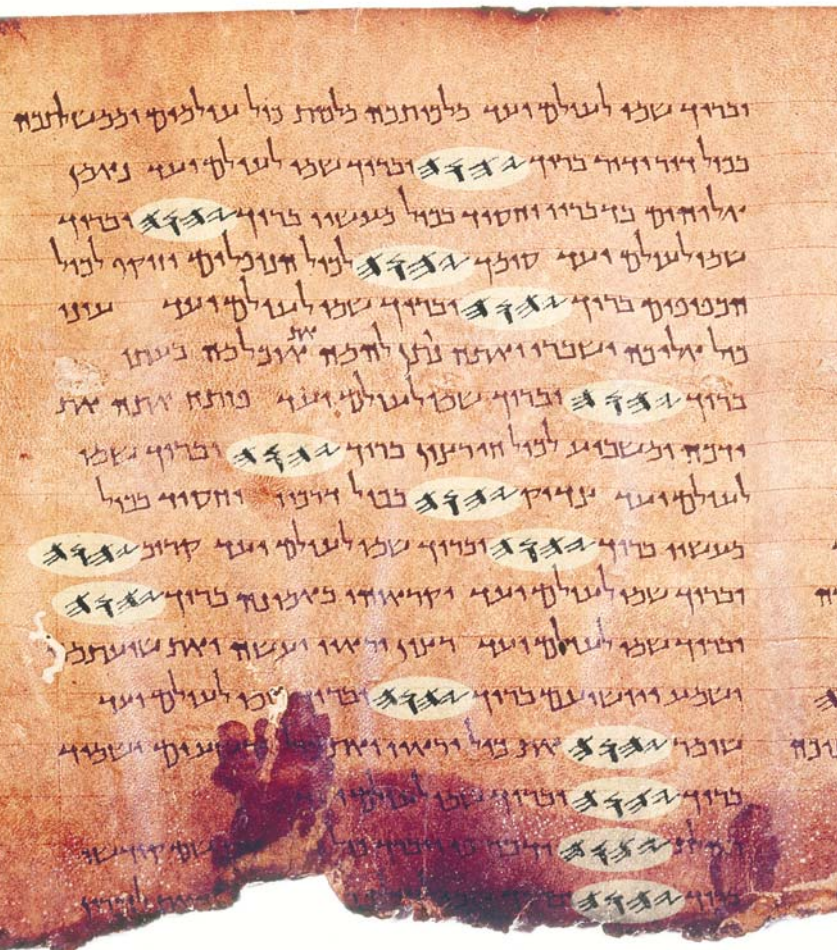 וברוך שמו לעולם ועד מלכותכה מלכות כול עולמים וממשלתכה
בכול דור ודור ברוך 𐤉𐤄𐤅𐤄 וברוך שמו לעולם ועד נאמן
אלוהים בדבריו וחסיד בכול מעשיו ברוך 𐤉𐤄𐤅𐤄 וברוך
שמו לעולם ועד סומך 𐤉𐤄𐤅𐤄 לכול הנופלים וזוקף לכול
הכפופים ברוך 𐤉𐤄𐤅𐤄 וברוך שמו לעולם ועד עיני
כול אליכה ישברו ואתה נתן להמה את אוכלמה בעתו
ברוך 𐤉𐤄𐤅𐤄 וברוך שמו לעולם ועד פותח אתה את
ידכה ומשביע לכול חי רצון ברוך 𐤉𐤄𐤅𐤄 וברוך שמו
לעולם ועד צדיק 𐤉𐤄𐤅𐤄 בכול דרכיו וחסיד בכול
מעשיו ברוך 𐤉𐤄𐤅𐤄 וברוך שמו לעולם ועד קרוב 𐤉𐤄𐤅𐤄
וברוך שמו לעולם ועד יקראוהו באמונה ברוך 𐤉𐤄𐤅𐤄
וברוך שמו לעולם ועד רצון יראיו יעשה ואת
וישמע ויושיעם ברוך 𐤉𐤄𐤅𐤄 וברוך שמו לעולם ועד
שומר 𐤉𐤄𐤅𐤄 את כול יראיו ואת כול ישמיד
ברוך 𐤉𐤄𐤅𐤄 וברוך שמו לעולם
𐤉𐤄𐤅𐤄 ידבר פי ויברך כול שם קודשו
ברוך 𐤉𐤄𐤅𐤄 לזכרון